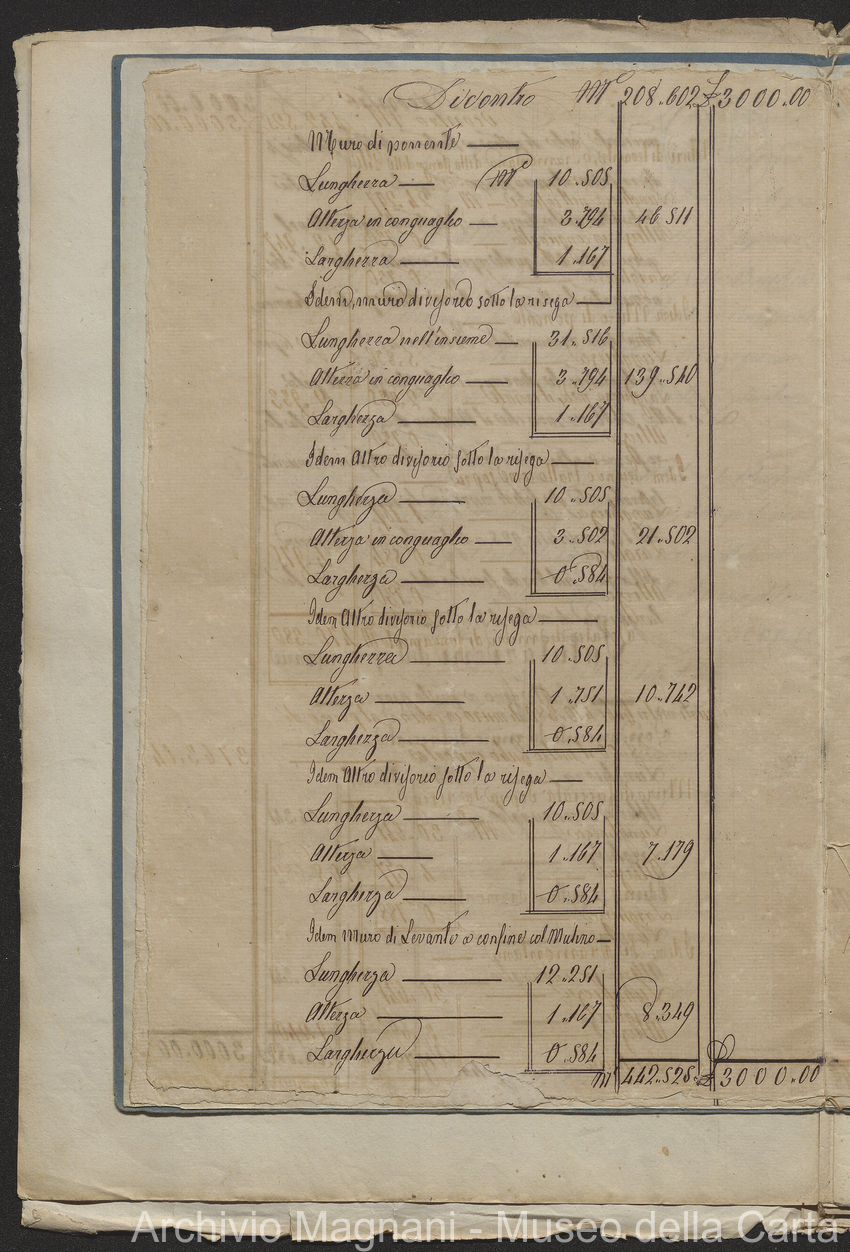 Dicontro M^c 208..602 £ 3000..00
Muro di ponente —
Lunghezza — M^c 10..505
Altezza in conguaglio — 3..794 46..511
Larghezza — 1..167
Idem, muro divisorio sotto la risega —
Lunghezza nell'insieme — 31..516
Altezza in conguaglio — 3..794 139..540
Larghezza — 1..167
Idem Altro divisorio sotto la risega —
Lunghezza — 10..505
Altezza in conguaglio — 3..502 21..502
Larghezza — 0..584
Idem Altro divisorio sotto la risega —
Lunghezza — 10..505
Altezza — 1..751 10..742
Larghezza — 0..584
Idem Altro divisorio sotto la risega —
Lunghezza — 10..505
Altezza — 1..167 7..179
Larghezza — 0..584
Idem Muro di Levante a confine col Mulino —
Lunghezza — 12..251
Altezza — 1..167 8..349
Larghezza — 0..584
M^c 442..525 £ 3000..00
Archivio Magnani - Museo della Carta